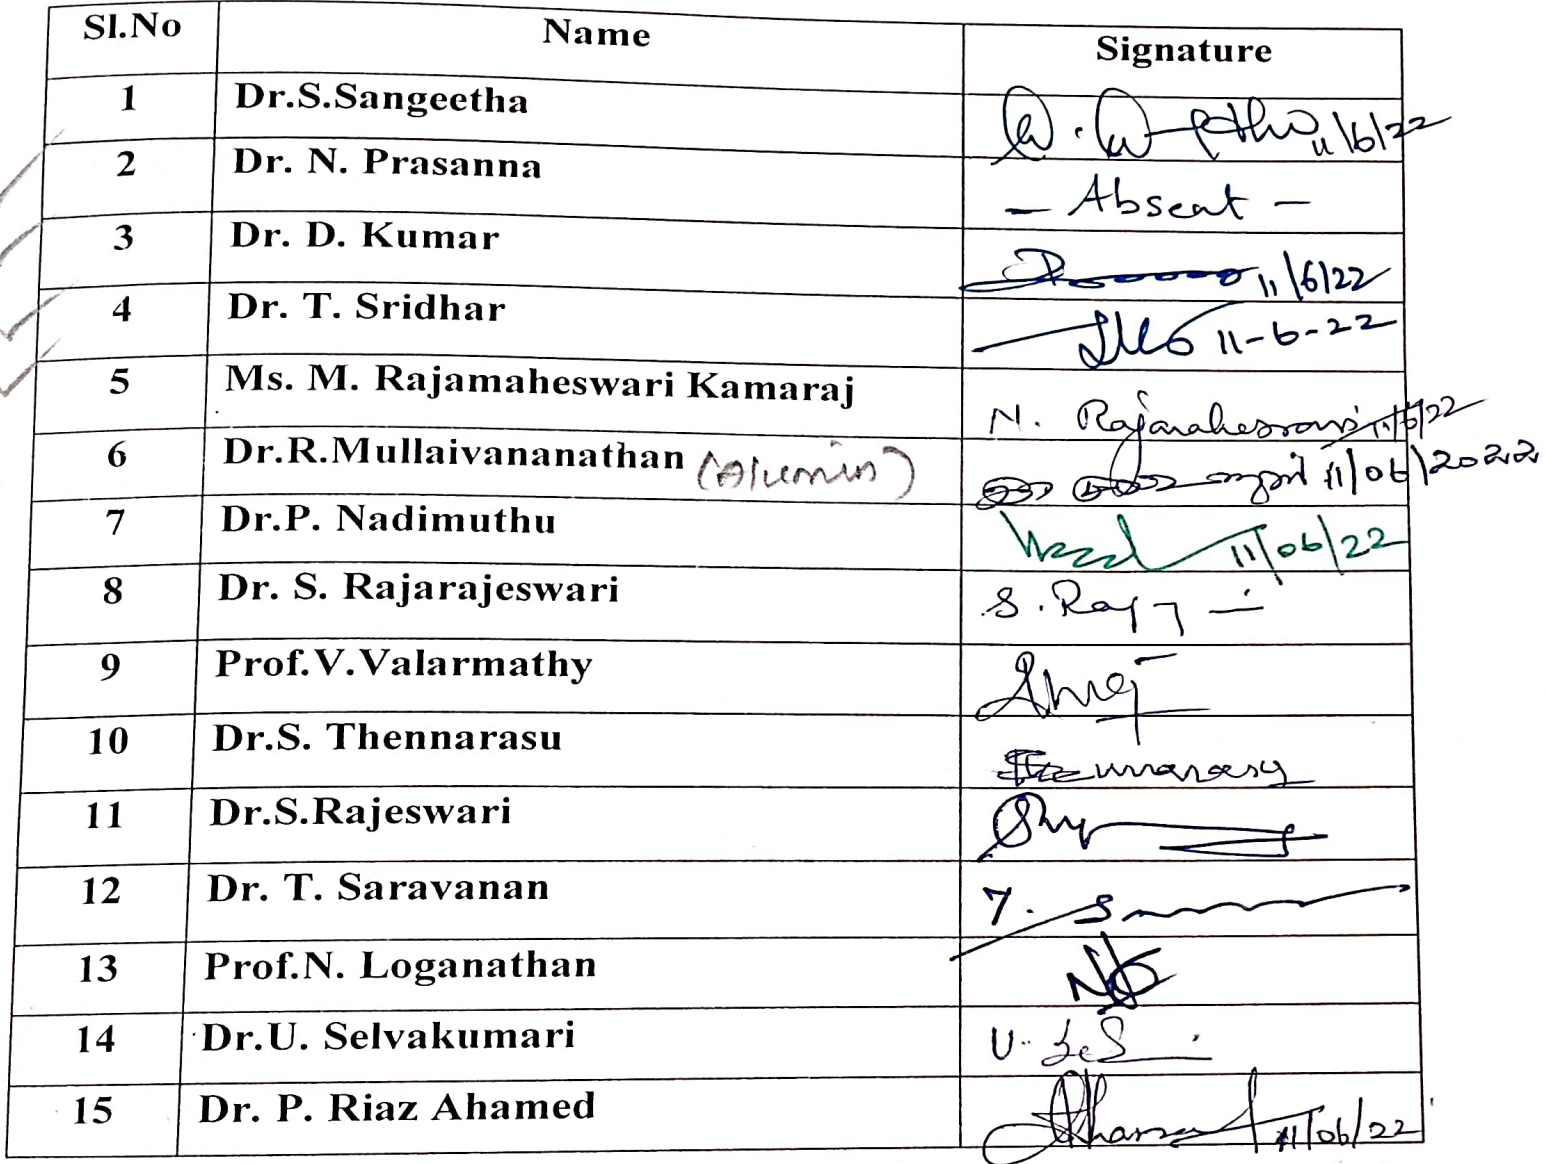 Sl.No Name Signature
1 Dr.S.Sangeetha 11/6/22
2 Dr. N. Prasanna - Absent -
3 Dr. D. Kumar 11/6/22
4 Dr. T. Sridhar 11-6-22
5 Ms. M. Rajamaheswari Kamaraj 11/6/22
6 Dr.R.Mullaivananathan 11/06/2022
7 Dr.P. Nadimuthu 11/06/22
8 Dr. S. Rajarajeswari S. Raj
9 Prof.V.Valarmathy
10 Dr.S. Thennarasu
11 Dr.S.Rajeswari
12 Dr. T. Saravanan T. S
13 Prof.N. Loganathan
14 Dr.U. Selvakumari U. Sel
15 Dr. P. Riaz Ahamed 11/06/22